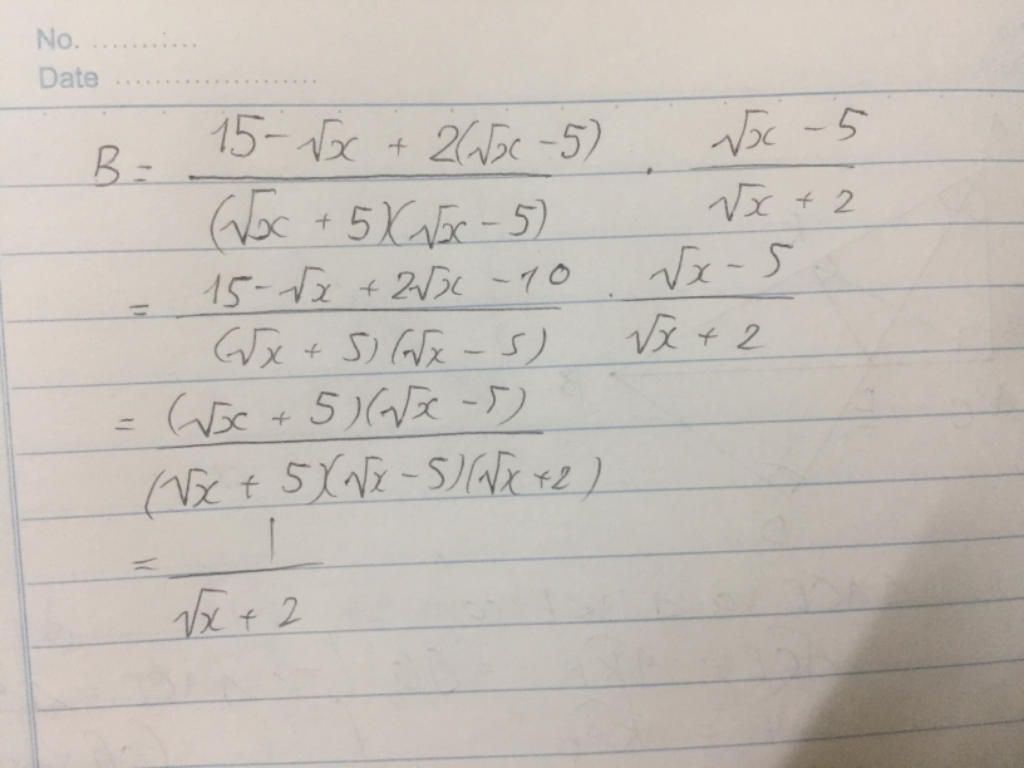 No. ............
Date .....................
B = \frac{15 - \sqrt{x} + 2(\sqrt{x} - 5)}{(\sqrt{x} + 5)(\sqrt{x} - 5)} . \frac{\sqrt{x} - 5}{\sqrt{x} + 2}
= \frac{15 - \sqrt{x} + 2\sqrt{x} - 10}{(\sqrt{x} + 5)(\sqrt{x} - 5)} . \frac{\sqrt{x} - 5}{\sqrt{x} + 2}
= \frac{(\sqrt{x} + 5)(\sqrt{x} - 5)}{(\sqrt{x} + 5)(\sqrt{x} - 5)(\sqrt{x} + 2)}
= \frac{1}{\sqrt{x} + 2}